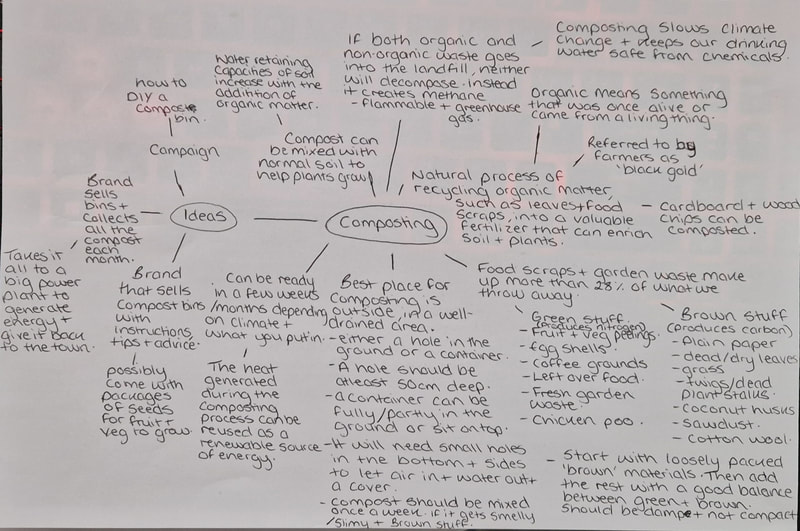 Composting slows climate
change + keeps our drinking
water safe from chemicals.
If both organic and
non-organic waste goes
into the landfill, neither
will decompose. instead
it creates methane
- Flammable + greenhouse
gas.
Water retaining
capacities of soil
increase with the
addition of
organic matter.
how to
DIY a
compost
bin.
Campaign
Compost can
be mixed with
normal soil to
help plants grow
Organic means something
that was once alive or
came from a living thing.
Referred to by
farmers as
'black gold'
Natural process of
recycling organic matter,
such as leaves + food
scraps, into a valuable
fertilizer that can enrich
soil + plants.
- cardboard + wood
chips can be
composted.
Brand
sells
bins +
collects
all the
compost
each
month.
Ideas
Composting
Takes it
all to a
big power
plant to
generate
energy +
give it back
to the town.
Brand
that sells
compost bins
with
instructions,
tips + advice.
possibly
come with
packages
of seeds
for fruit +
veg to grow.
Can be ready
in a few weeks
/months depending
on climate +
what you put in.
The heat
generated
during the
composting
process can be
reused as a
renewable source
of energy.
Best place for
composting is
outside, in a well-
drained area.
- either a hole in the
ground or a container.
- A hole should be
atleast 50cm deep.
- a container can be
fully/partly in the
ground or sit on top.
- It will need small holes
in the bottom + sides
to let air in + water out +
a cover.
- compost should be mixed
once a week. if it gets smelly
/slimy + Brown stuff.
Food scraps + garden waste make
up more than 28% of what we
throw away.
Green stuff
(produces nitrogen)
- Fruit + veg peelings.
- egg shells.
- Coffee grounds
- Left over food.
- Fresh garden
waste.
- Chicken poo.
Brown stuff
(produces carbon)
- Plain paper
- dead/dry leaves
- grass
- twigs/dead
plant stalks.
- coconut husks
- sawdust.
- cotton wool.
- Start with loosely packed
'brown' materials. Then add
the rest with a good balance
between green + brown.
Should be damp + not compact